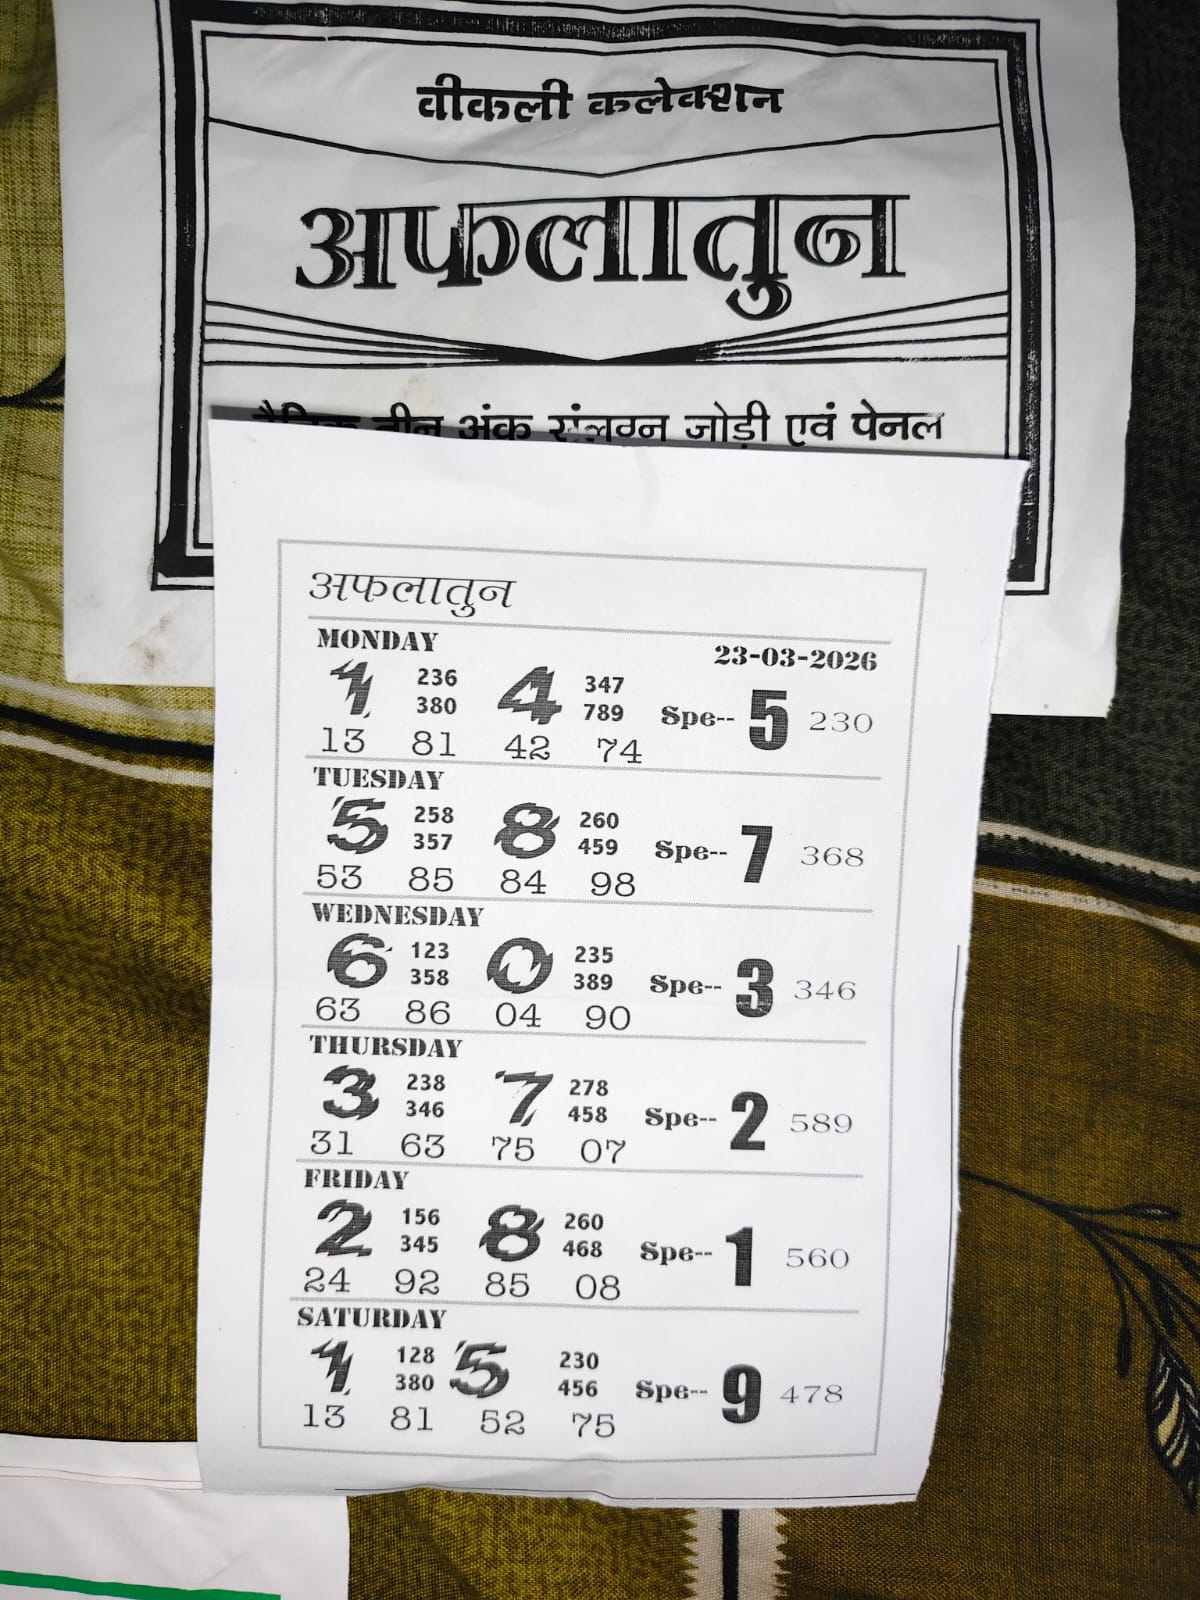 वीकली कलेक्शन
अफलातुन
दैनिक तीन अंक संलग्न जोड़ी एवं पेनल
अफलातुन
MONDAY
23-03-2026
1 236 4 347 Spe-- 5 230
380 789
13 81 42 74
TUESDAY
5 258 8 260 Spe-- 7 368
357 459
53 85 84 98
WEDNESDAY
6 123 0 235 Spe-- 3 346
358 389
63 86 04 90
THURSDAY
3 238 7 278 Spe-- 2 589
346 458
31 63 75 07
FRIDAY
2 156 8 260 Spe-- 1 560
345 468
24 92 85 08
SATURDAY
1 128 5 230 Spe-- 9 478
380 456
13 81 52 75